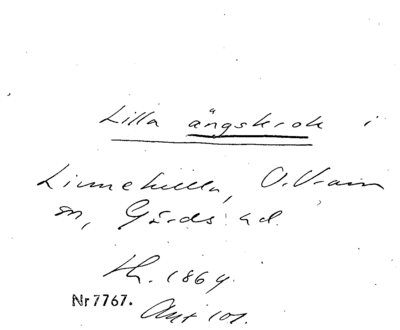 Lilla ängskrok i
Linnekulla, O. Vram
sn, Gärds hd.
th. 1864.
Nr 7767.
Akt 101.